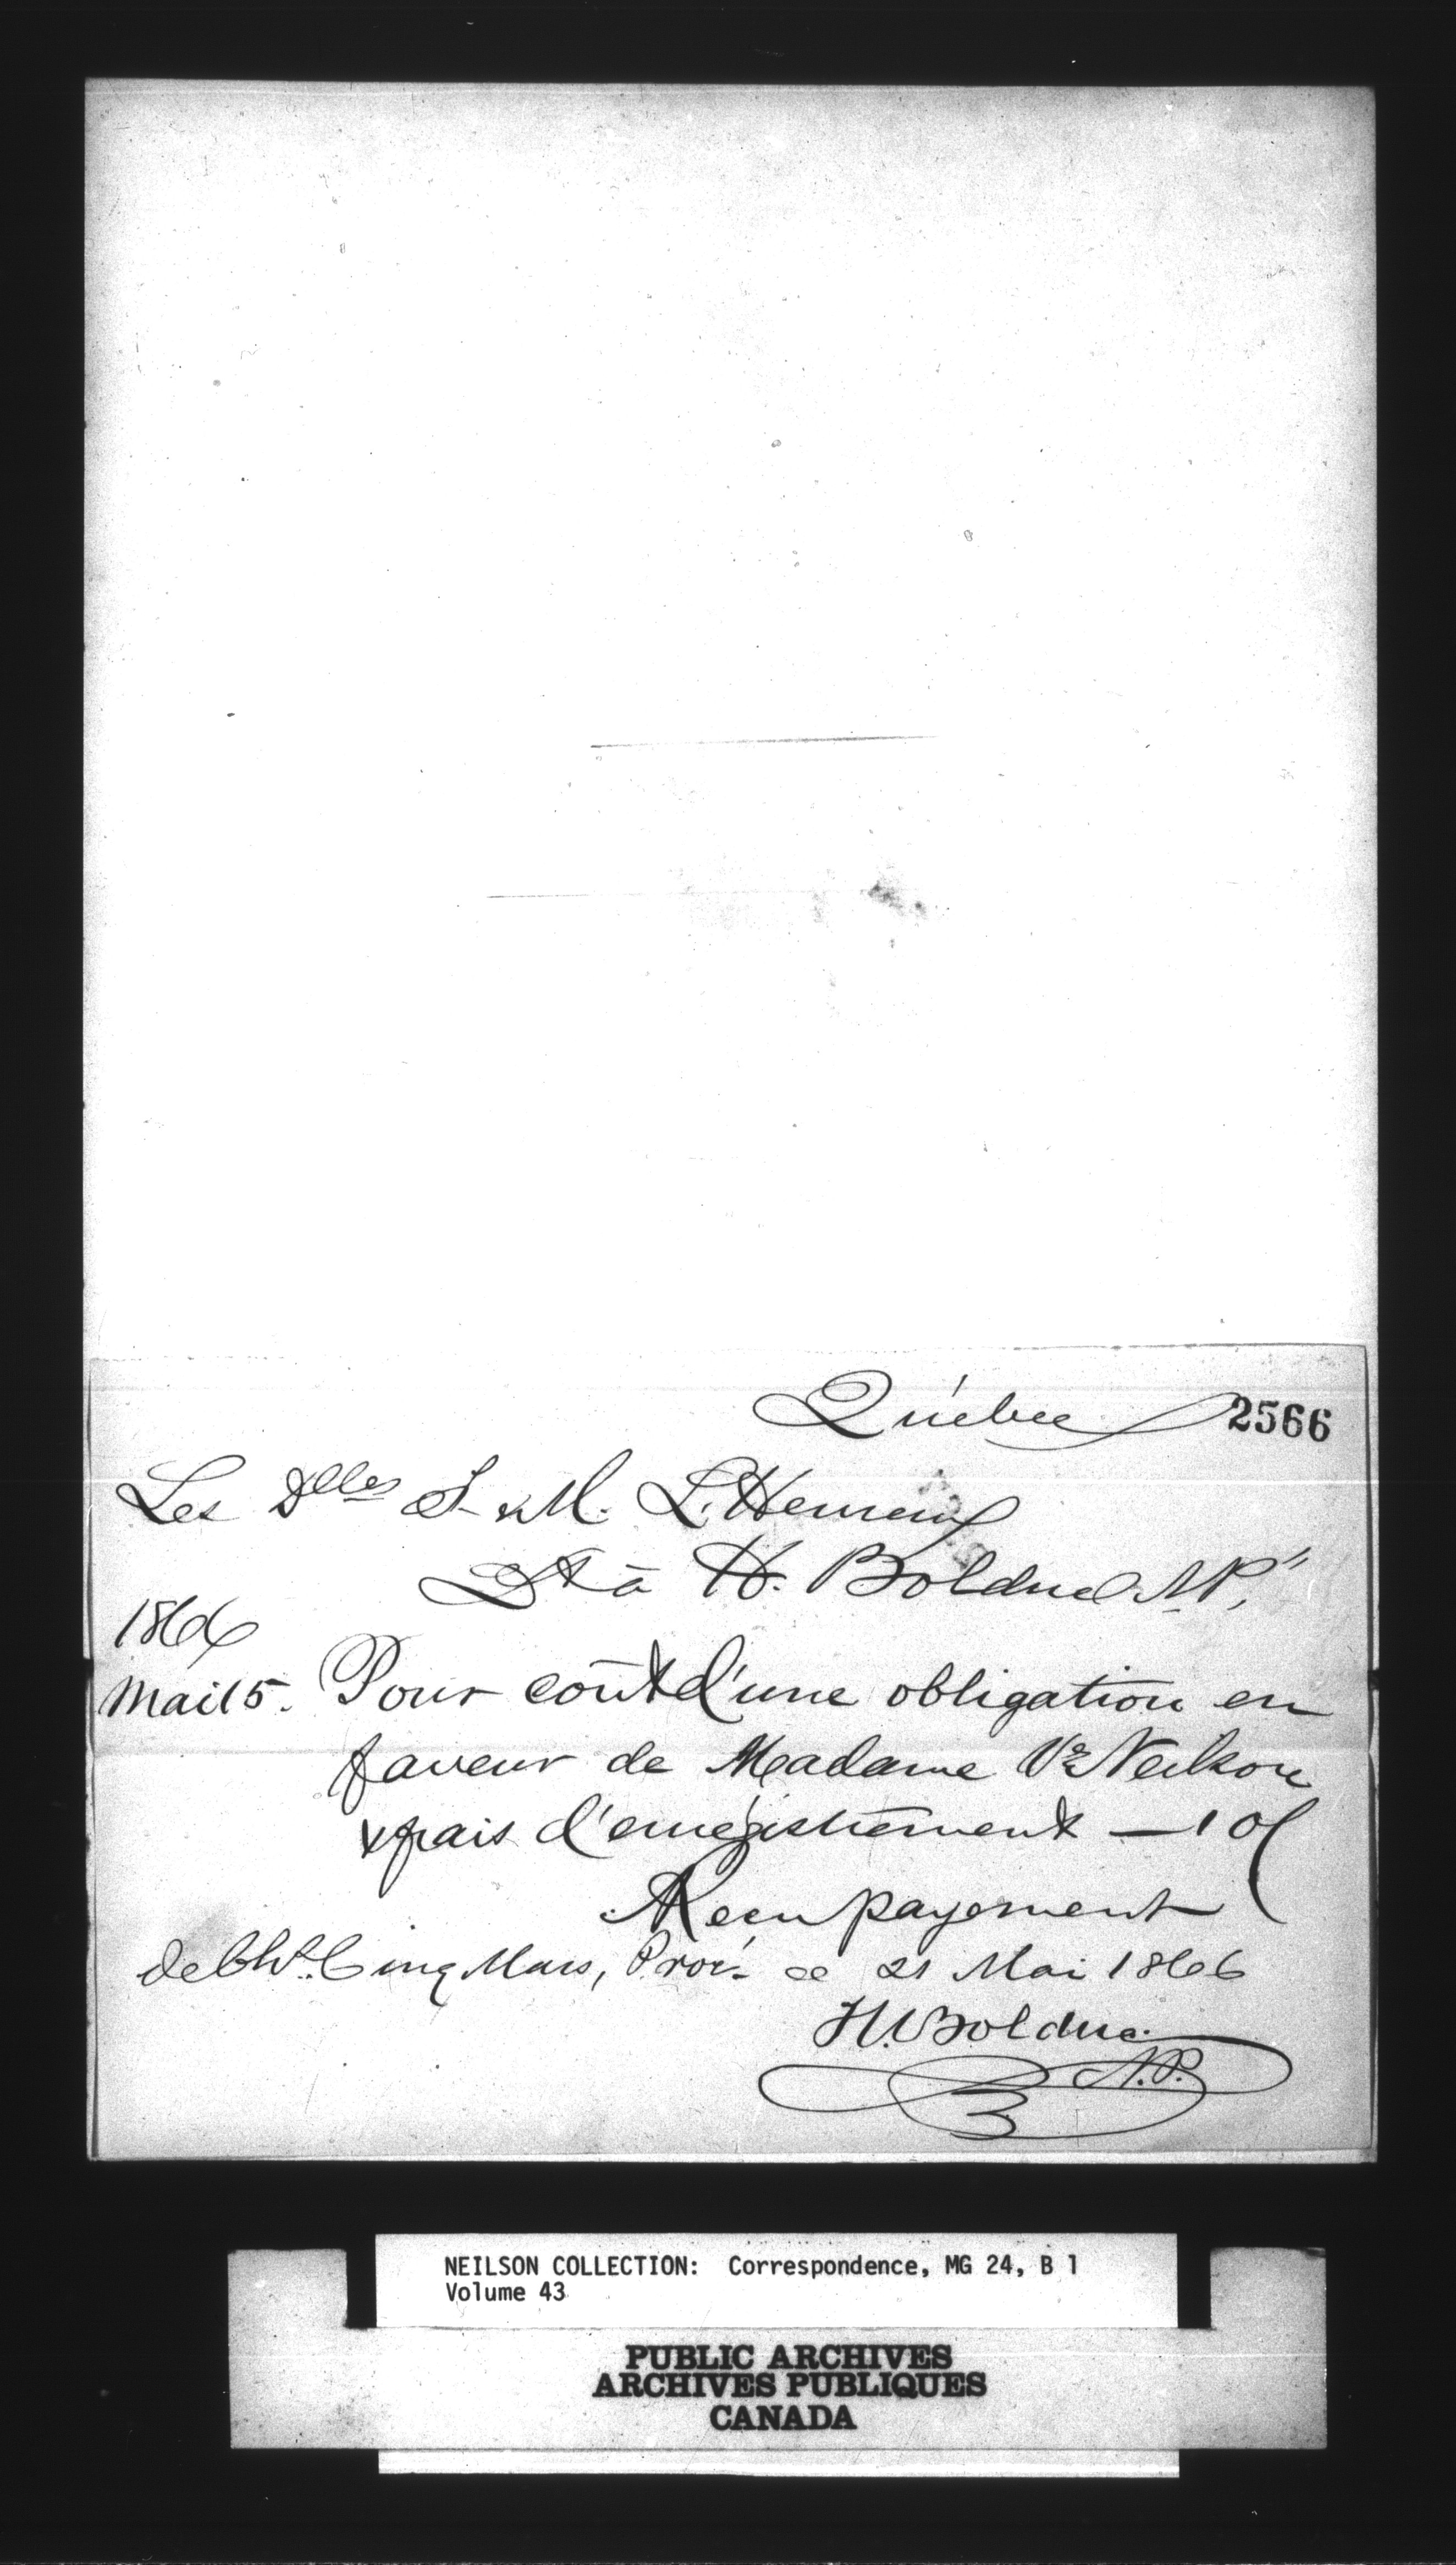 Québec 2566
Les Dlles S. & M. L'Heureux
Dt à H. Bolduc N.P.
1866
Mai 15. Pour coût d'une obligation en
faveur de Madame Ve Neilson
& frais d'enrégistrement — 10/
Recu payement
de Chs. Cinq Mars, Procr. ce 21 Mai 1866
H. Bolduc
N.P.
NEILSON COLLECTION: Correspondence, MG 24, B 1
Volume 43
PUBLIC ARCHIVES
ARCHIVES PUBLIQUES
CANADA